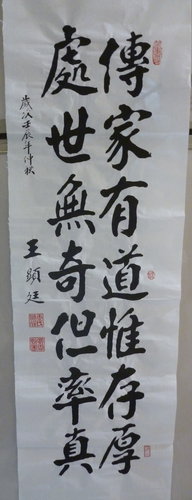 傳家有道惟存厚
處世無奇但率真
歲次壬辰年仲秋
王顯廷